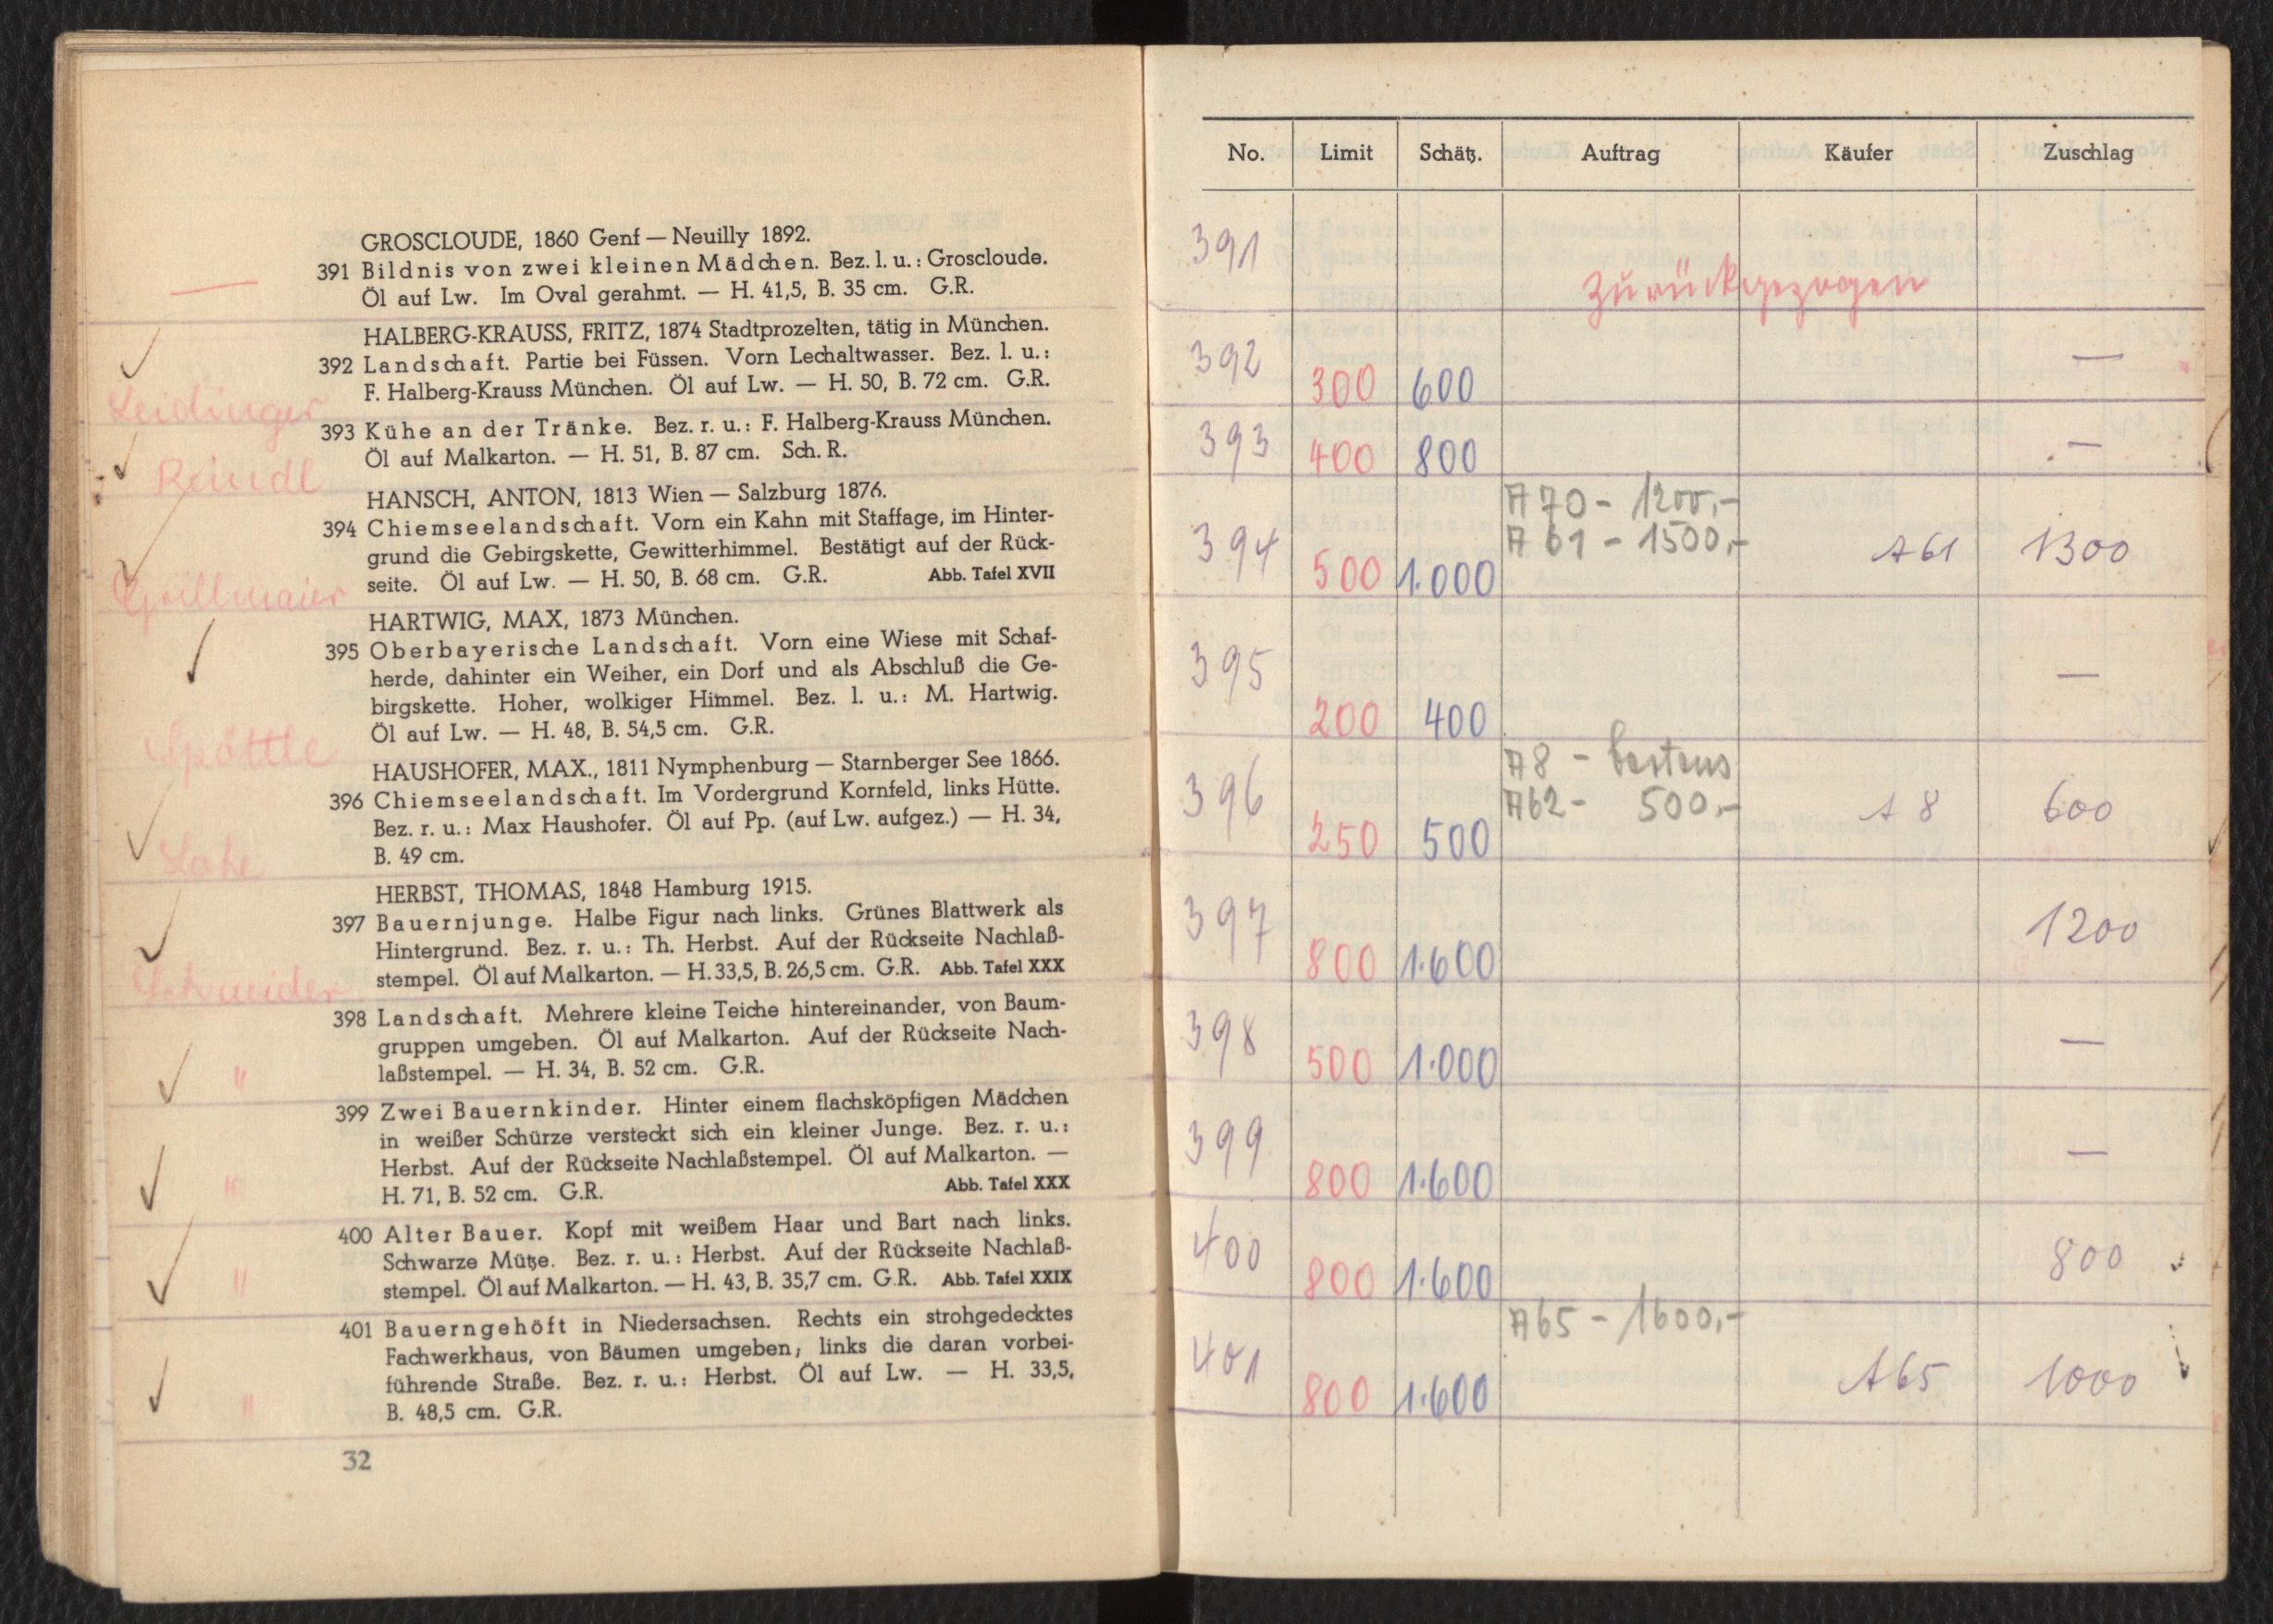 GROSCLOUDE, 1860 Genf — Neuilly 1892.
391 Bildnis von zwei kleinen Mädchen. Bez. l. u.: Groscloude.
Öl auf Lw. Im Oval gerahmt. — H. 41,5, B. 35 cm. G.R.
HALBERG-KRAUSS, FRITZ, 1874 Stadtprozelten, tätig in München.
392 Landschaft. Partie bei Füssen. Vorn Lechaltwasser. Bez. l. u.:
F. Halberg-Krauss München. Öl auf Lw. — H. 50, B. 72 cm. G.R.
Leidinger
393 Kühe an der Tränke. Bez. r. u.: F. Halberg-Krauss München.
Öl auf Malkarton. — H. 51, B. 87 cm. Sch. R.
Reindl
HANSCH, ANTON, 1813 Wien — Salzburg 1876.
394 Chiemseelandschaft. Vorn ein Kahn mit Staffage, im Hinter-
grund die Gebirgskette, Gewitterhimmel. Bestätigt auf der Rück-
seite. Öl auf Lw. — H. 50, B. 68 cm. G.R. Abb. Tafel XVII
Grillmaier
HARTWIG, MAX, 1873 München.
395 Oberbayerische Landschaft. Vorn eine Wiese mit Schaf-
herde, dahinter ein Weiher, ein Dorf und als Abschluß die Ge-
birgskette. Hoher, wolkiger Himmel. Bez. l. u.: M. Hartwig.
Öl auf Lw. — H. 48, B. 54,5 cm. G.R.
Spöttle
HAUSHOFER, MAX., 1811 Nymphenburg — Starnberger See 1866.
396 Chiemseelandschaft. Im Vordergrund Kornfeld, links Hütte.
Bez. r. u.: Max Haushofer. Öl auf Pp. (auf Lw. aufgez.) — H. 34,
B. 49 cm.
Lohe
HERBST, THOMAS, 1848 Hamburg 1915.
397 Bauernjunge. Halbe Figur nach links. Grünes Blattwerk als
Hintergrund. Bez. r. u.: Th. Herbst. Auf der Rückseite Nachlaß-
stempel. Öl auf Malkarton. — H. 33,5, B. 26,5 cm. G.R. Abb. Tafel XXX
Schneider
398 Landschaft. Mehrere kleine Teiche hintereinander, von Baum-
gruppen umgeben. Öl auf Malkarton. Auf der Rückseite Nach-
laßstempel. — H. 34, B. 52 cm. G.R.
"
399 Zwei Bauernkinder. Hinter einem flachsköpfigen Mädchen
in weißer Schürze versteckt sich ein kleiner Junge. Bez. r. u.:
Herbst. Auf der Rückseite Nachlaßstempel. Öl auf Malkarton. —
H. 71, B. 52 cm. G.R. Abb. Tafel XXX
"
400 Alter Bauer. Kopf mit weißem Haar und Bart nach links.
Schwarze Mütze. Bez. r. u.: Herbst. Auf der Rückseite Nachlaß-
stempel. Öl auf Malkarton. — H. 43, B. 35,7 cm. G.R. Abb. Tafel XXIX
"
401 Bauerngehöft in Niedersachsen. Rechts ein strohgedecktes
Fachwerkhaus, von Bäumen umgeben; links die daran vorbei-
führende Straße. Bez. r. u.: Herbst. Öl auf Lw. — H. 33,5,
B. 48,5 cm. G.R.
"
32
No. Limit Schätz. Auftrag Käufer Zuschlag
391 Zurückgezogen
392 300 600 —
393 400 800 —
A70 - 1200,-
394 500 1.000 A 61 - 1500,- A61 1300
395 200 400 —
A8 - bestens
396 250 500 A62 - 500,- A 8 600
397 800 1.600 1200
398 500 1.000 —
399 800 1.600 —
400 800 1.600 800
A65 - 1600,-
401 800 1.600 A65 1000